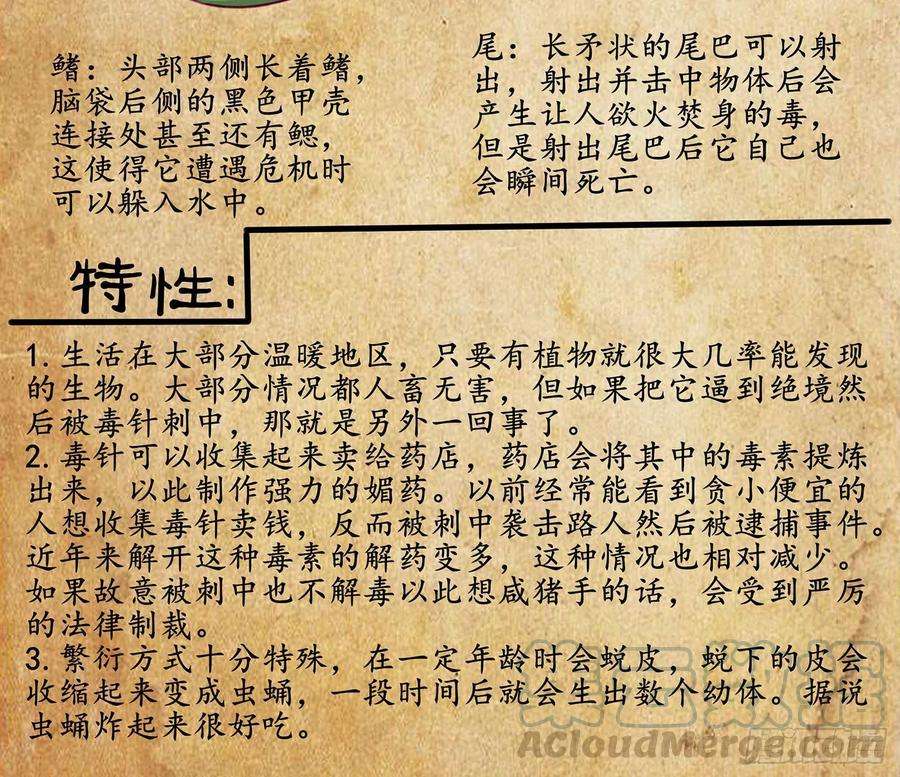 鳍：头部两侧长着鳍，
脑袋后侧的黑色甲壳
连接处甚至还有鳃，
这使得它遭遇危机时
可以躲入水中。
尾：长矛状的尾巴可以射
出，射出并击中物体后会
产生让人欲火焚身的毒，
但是射出尾巴后它自己也
会瞬间死亡。
特性：
1.生活在大部分温暖地区，只要有植物就很大几率能发现
的生物。大部分情况都人畜无害，但如果把它逼到绝境然
后被毒针刺中，那就是另外一回事了。
2.毒针可以收集起来卖给药店，药店会将其中的毒素提炼
出来，以此制作强力的媚药。以前经常能看到贪小便宜的
人想收集毒针卖钱，反而被刺中袭击路人然后被逮捕事件。
近年来解开这种毒素的解药变多，这种情况也相对减少。
如果故意被刺中也不解毒以此想咸猪手的话，会受到严厉
的法律制裁。
3.繁衍方式十分特殊，在一定年龄时会蜕皮，蜕下的皮会
收缩起来变成虫蛹，一段时间后就会生出数个幼体。据说
虫蛹炸起来很好吃。
ACloudMerge.com